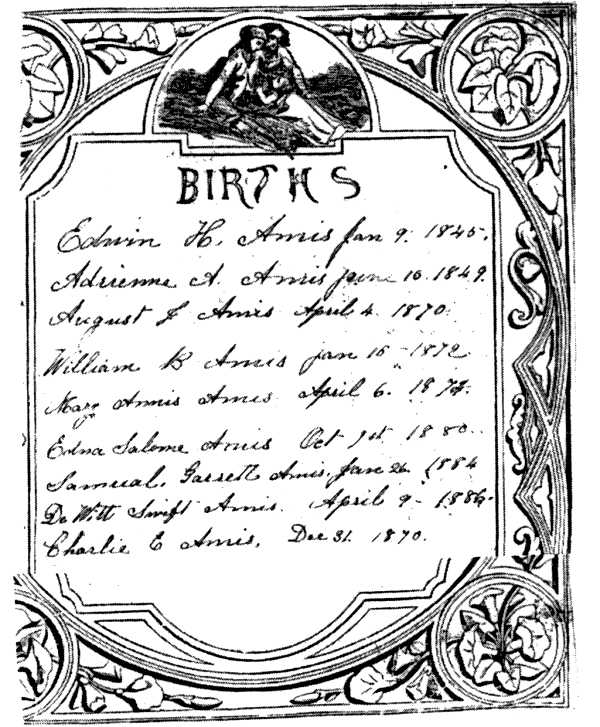 BIRTHS
Edwin H. Amis Jan 9. 1845.
Adrienne A. Amis June 10. 1849.
August J Amis April 4. 1870.
William B Amis Jan 15 - 1872
Mary Annis Amis April 6.
Edna Salome Amis Oct 1st 1880.
Samual. Garrett Amis. Jan 26 1884
De Witt Swift Amis. April 9 - 1886.
Charlie E Amis, Dec 31. 1870.